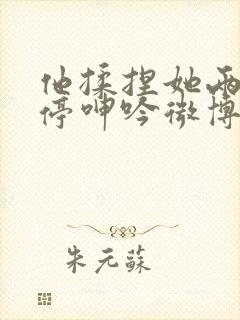 他揉捏她两
停呻吟微博
朱元蘇